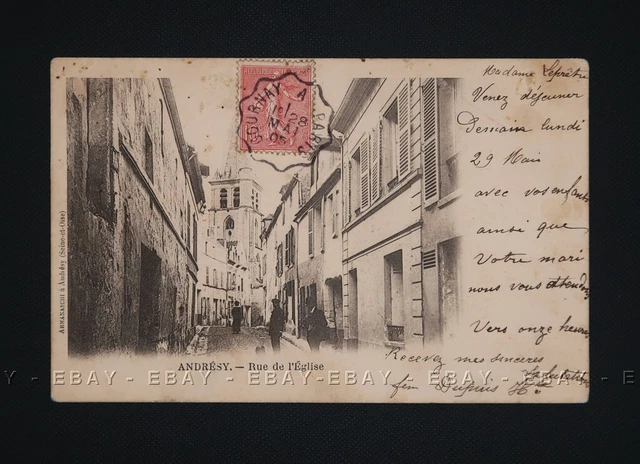 GOURNAY A PARIS
28
MAI
05
Madame Leprêtre
Venez déjeuner
Demain lundi
29 Mai
avec vos enfants
ainsi que
Votre mari
nous vous attendons
Vers onze heures
Recevez mes sincères
Salutations
fem Dupuis
ARMANAICHI à Andrésy (Seine-et-Oise)
ANDRÉSY. — Rue de l'Église
Y - EBAY - EBAY - EBAY - EBAY - EBAY - EBAY